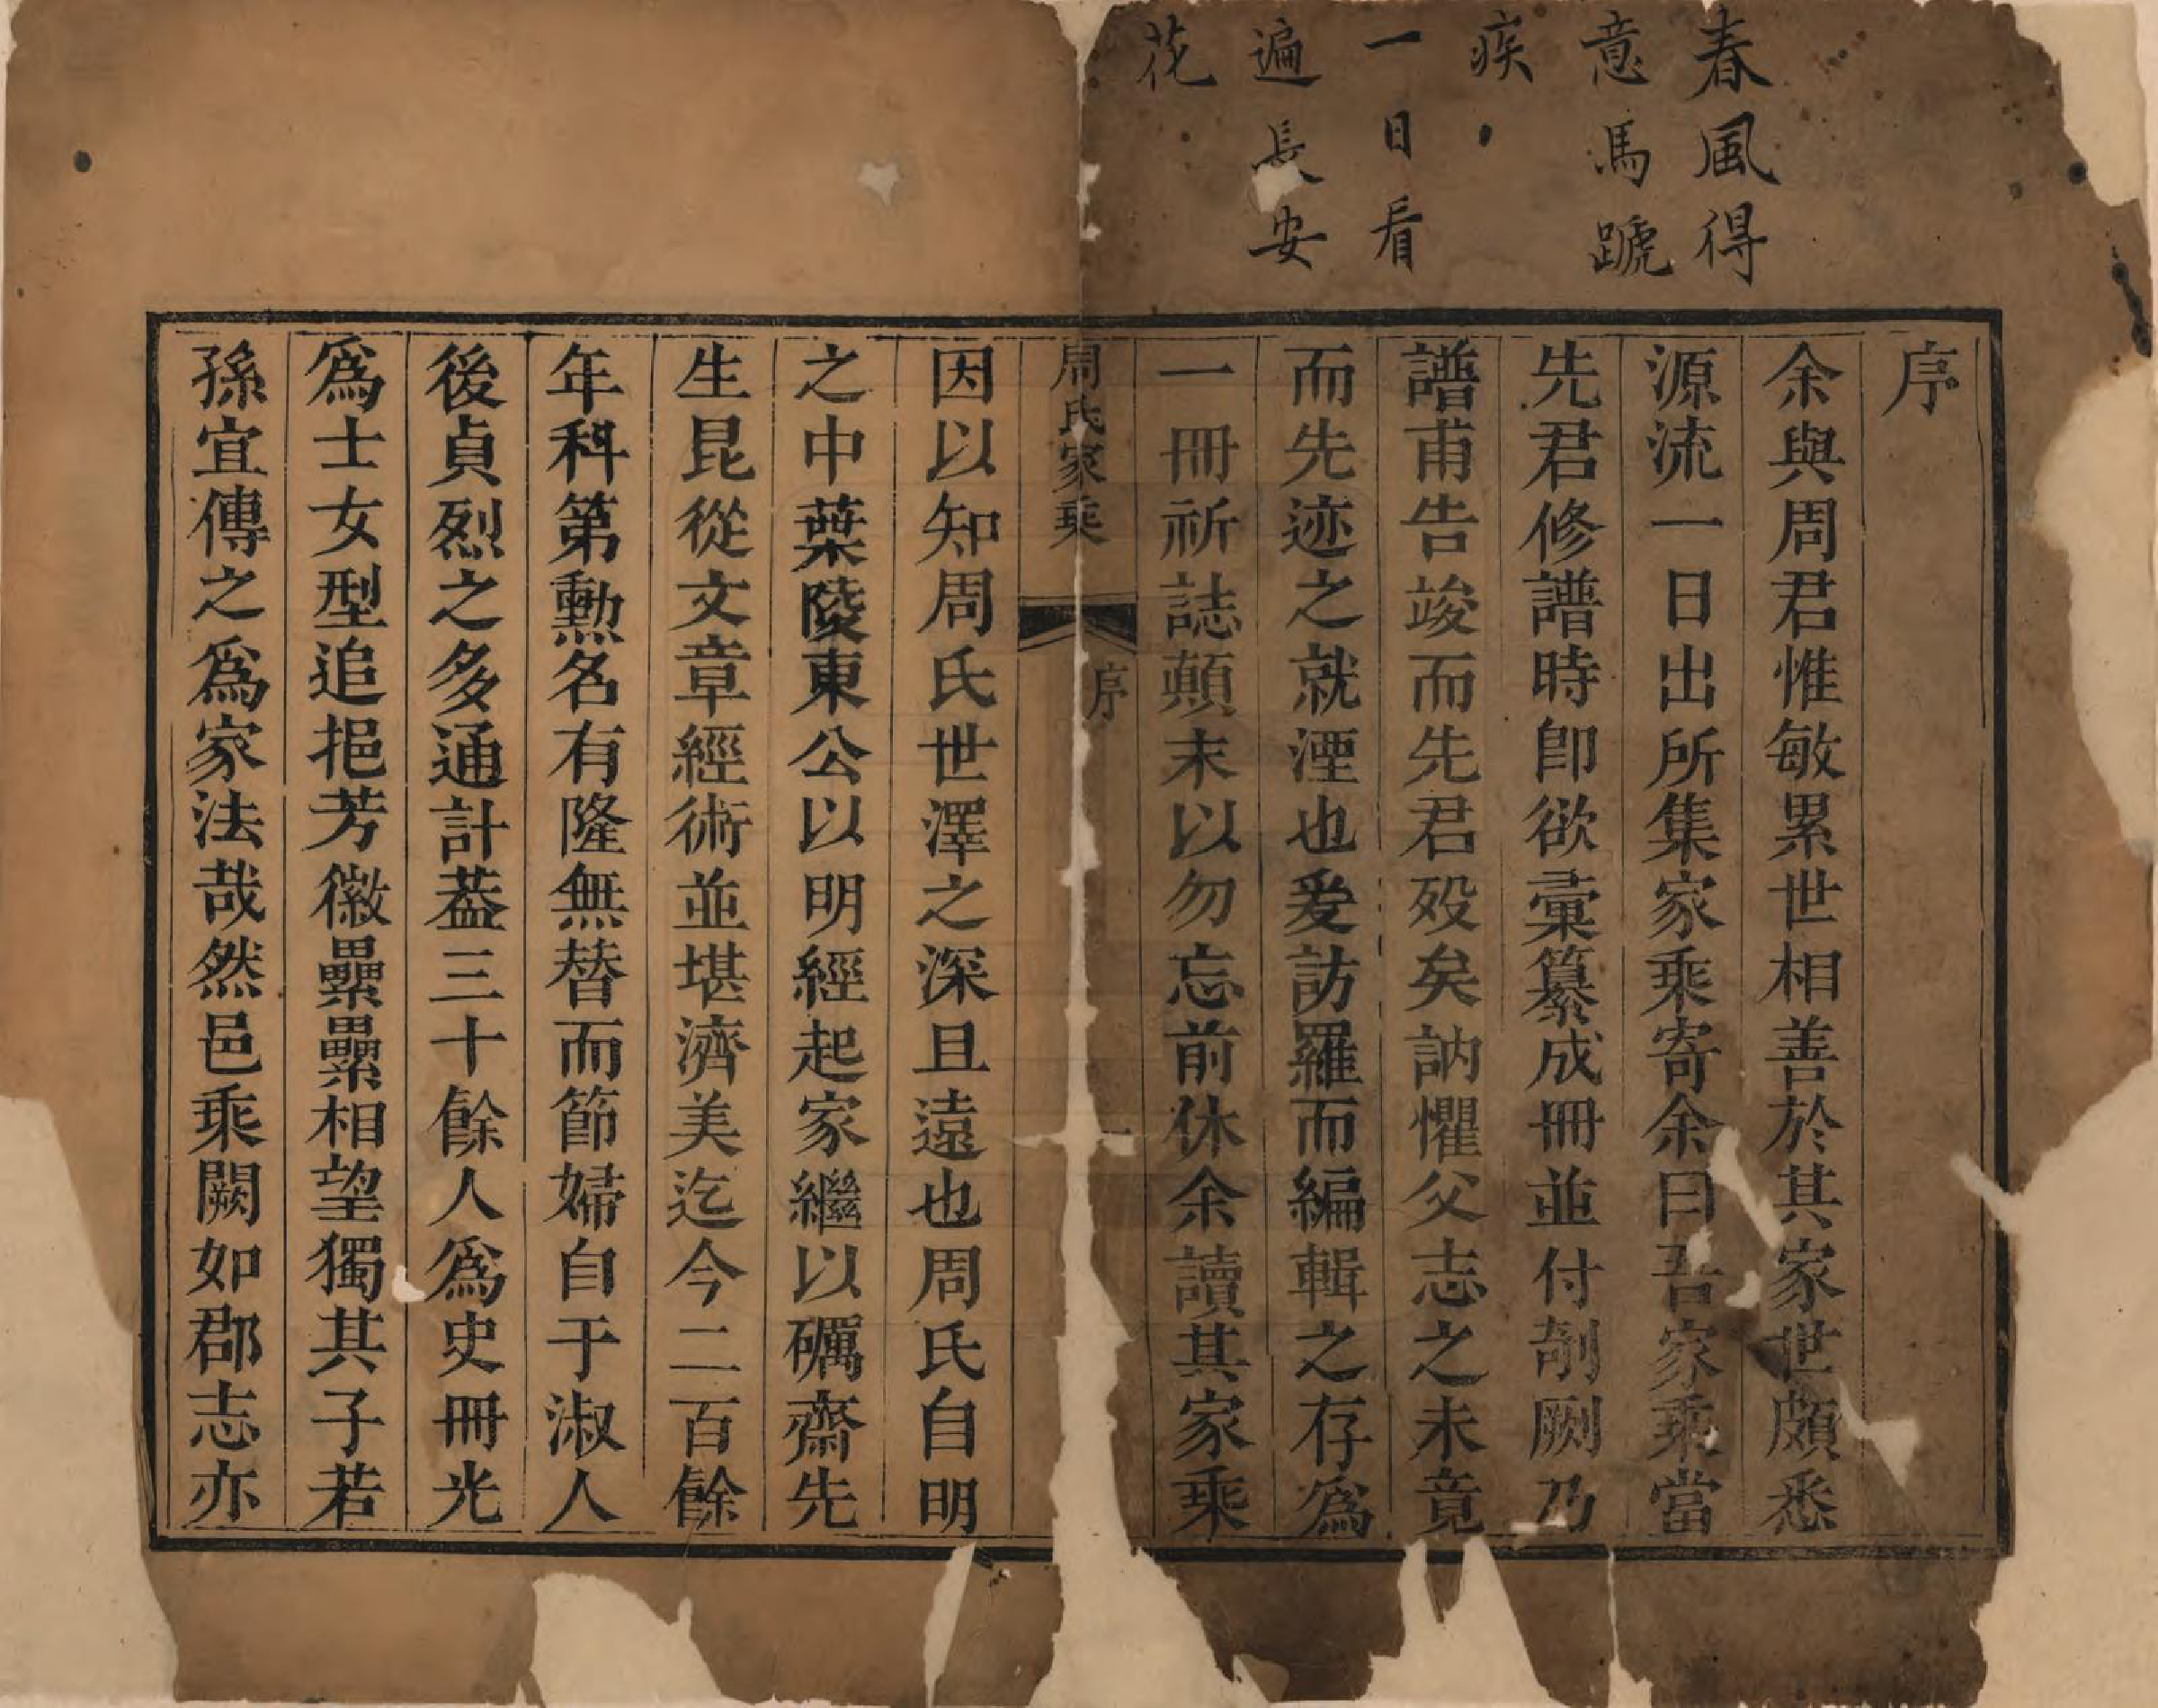 春風得
意馬蹏
疾
一日看
遍長安
花
序
余與周君惟敏累世相善於其家世頗悉
源流一日出所集家乘寄余曰吾家乘當
先君修譜時卽欲彙纂成冊並付剞劂乃
譜甫告竣而先君歿矣訥懼父志之未竟
而先迹之就湮也爰訪羅而編輯之存爲
一冊祈誌顛末以勿忘前休余讀其家乘
周氏家乘 序 一
因以知周氏世澤之深且遠也周氏自明
之中葉陵東公以明經起家繼以礪齋先
生昆從文章經術並堪濟美迄今二百餘
年科第勳名有隆無替而節婦自于淑人
後貞烈之多通計葢三十餘人爲史冊光
爲士女型追挹芳徽纍纍相望獨其子若
孫宜傳之爲家法哉然邑乘闕如郡志亦